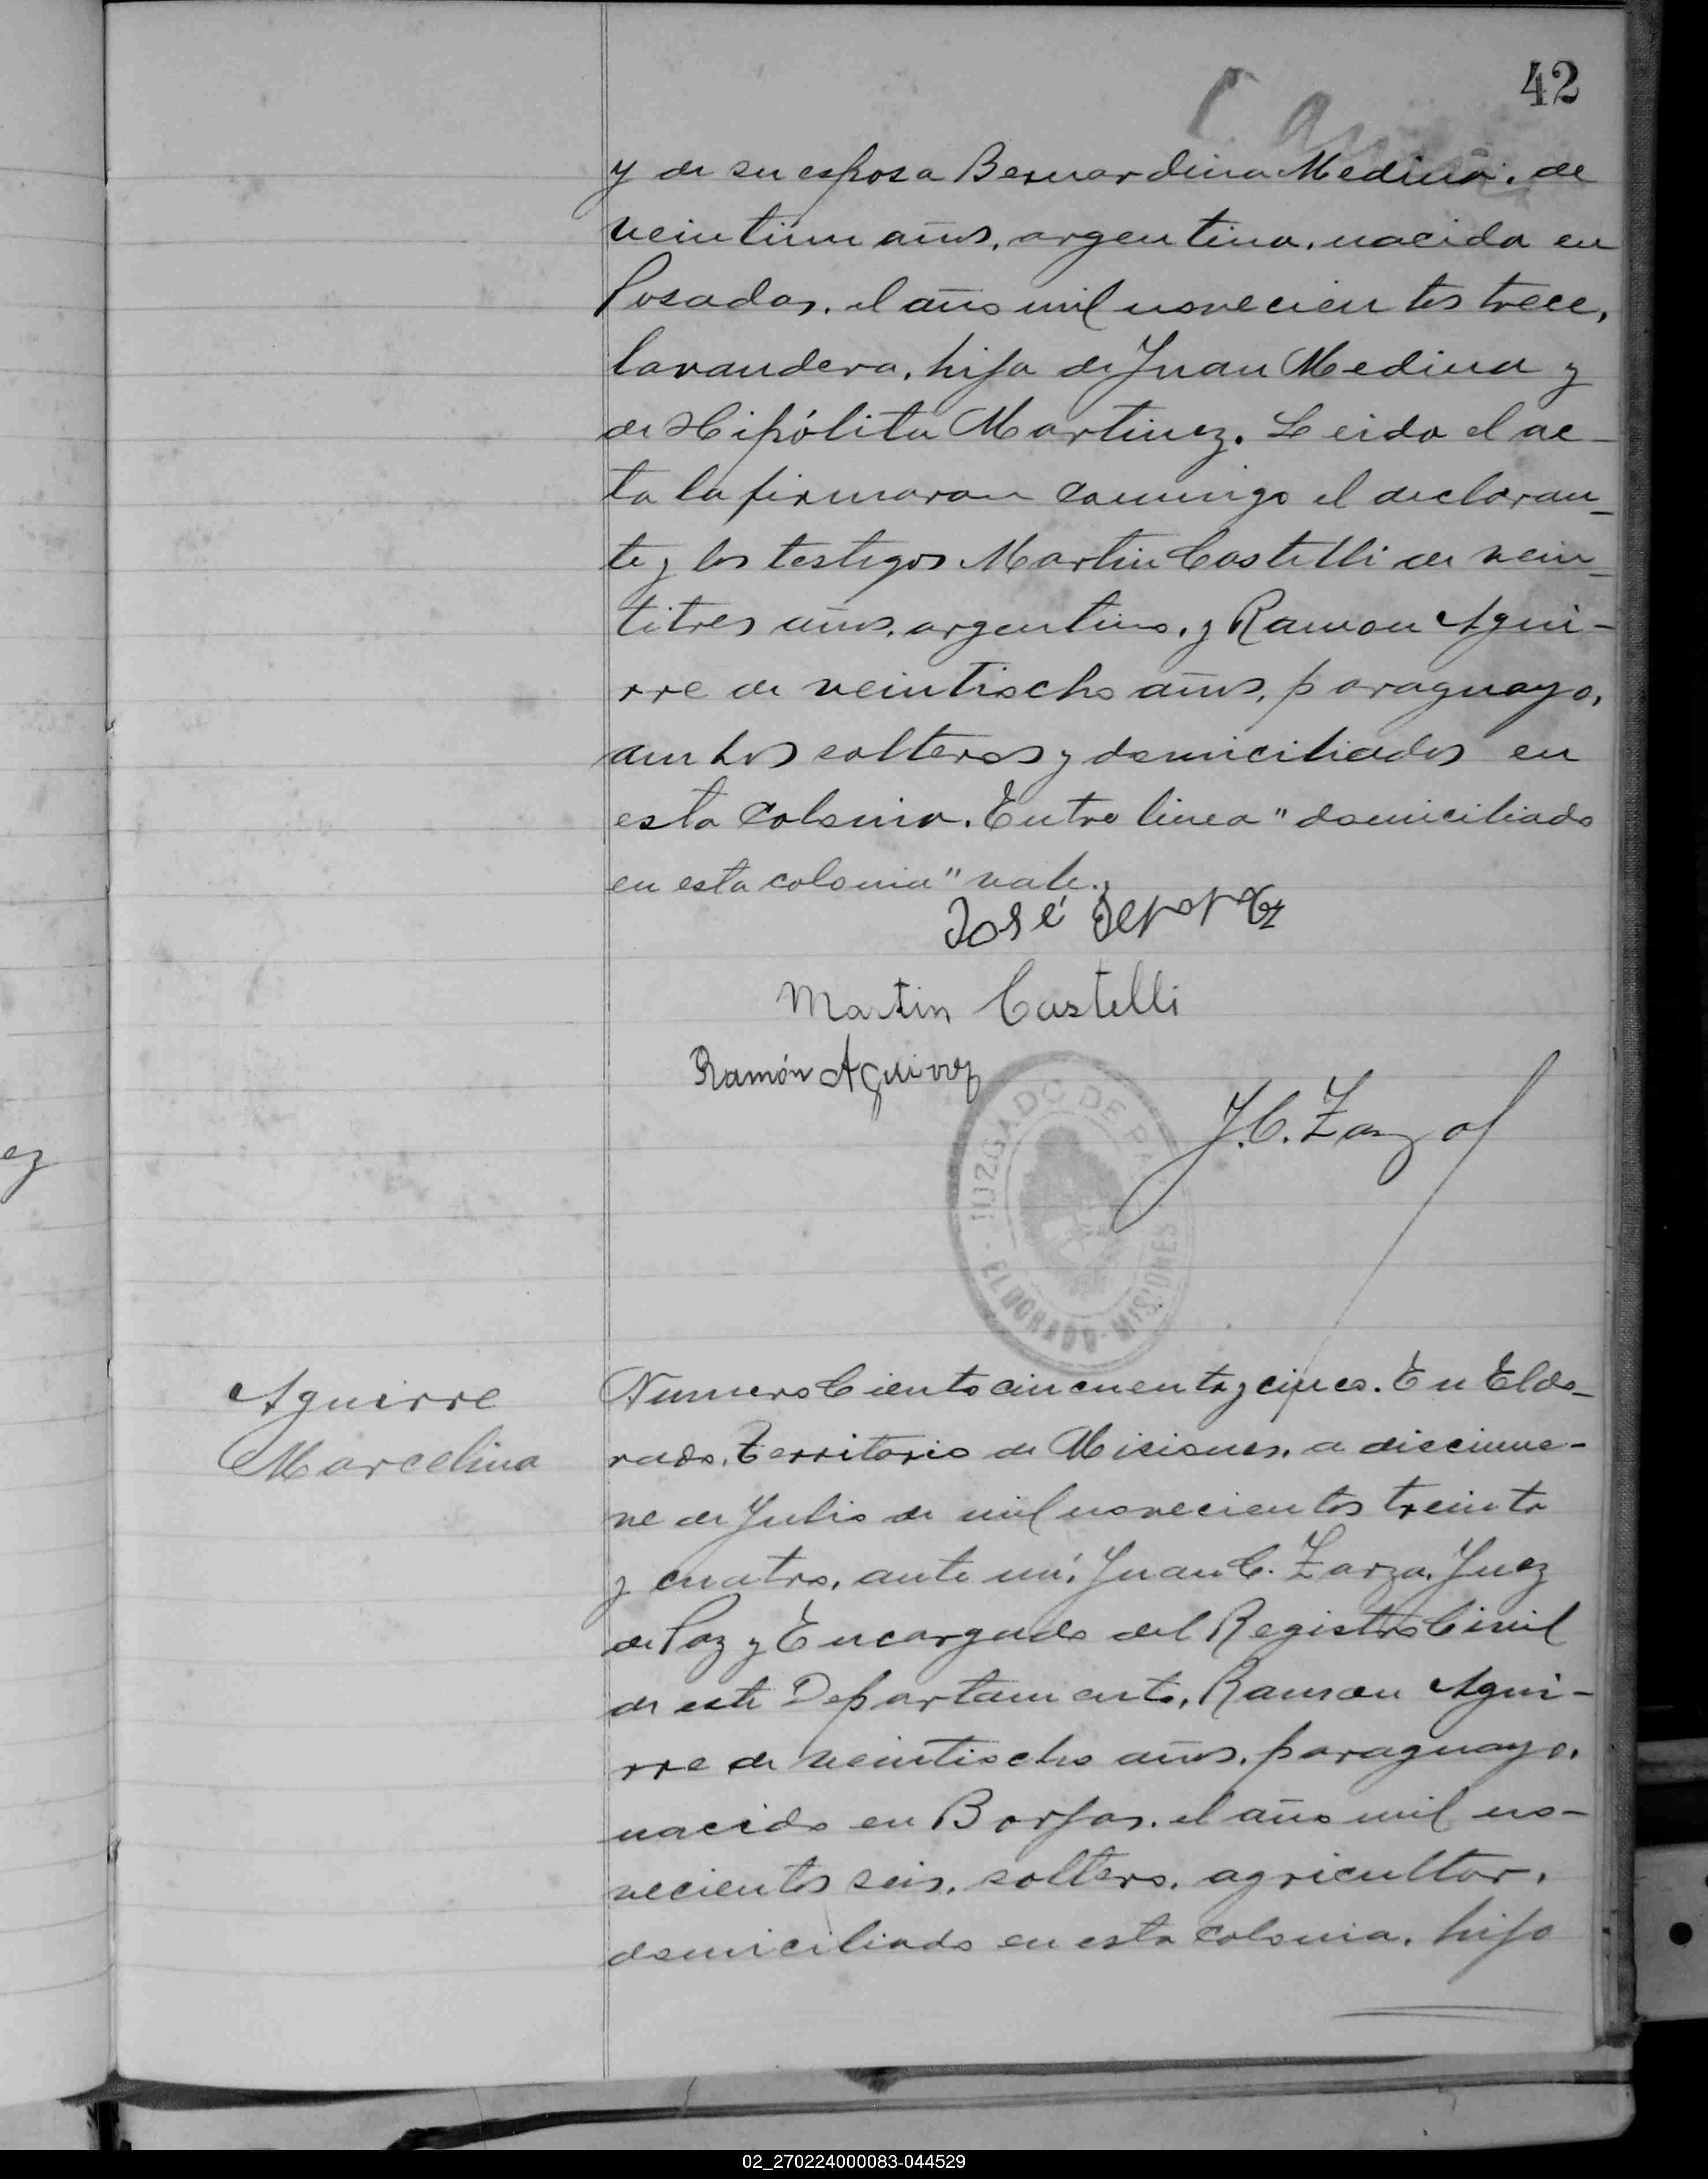 42
y de su esposa Bernardina Medina, de
veintiun años, argentina, nacida en
Posadas, el año mil novecientos trece,
lavandera, hija de Juan Medina y
de Hipólita Martinez. Leida el ac-
ta la firmaron conmigo el declaran-
te y los testigos Martin Castelli de vein-
titres años, argentino, y Ramon Agui-
rre de veintiocho años, paraguayo,
ambos solteros y domiciliados en
esta colonia. Entre linea "domiciliado
en esta colonia" vale.
José
Martin Castelli
Ramón Aguirre
J. C. Zarza
JUZGADO DE PAZ
ELDORADO - MISIONES
Aguirre
Marcelina
Numero Ciento cincuenta y cinco. En Eldo-
rado, Territorio de Misiones, a diecinue-
ve de Julio de mil novecientos treinta
y cuatro, ante mí, Juan C. Zarza, Juez
de Paz y Encargado del Registro Civil
de este Departamento, Ramon Agui-
rre de veintiocho años, paraguayo,
nacido en Borjas, el año mil no-
vecientos seis, soltero, agricultor,
domiciliado en esta colonia, hijo
ez
02_270224000083-044529